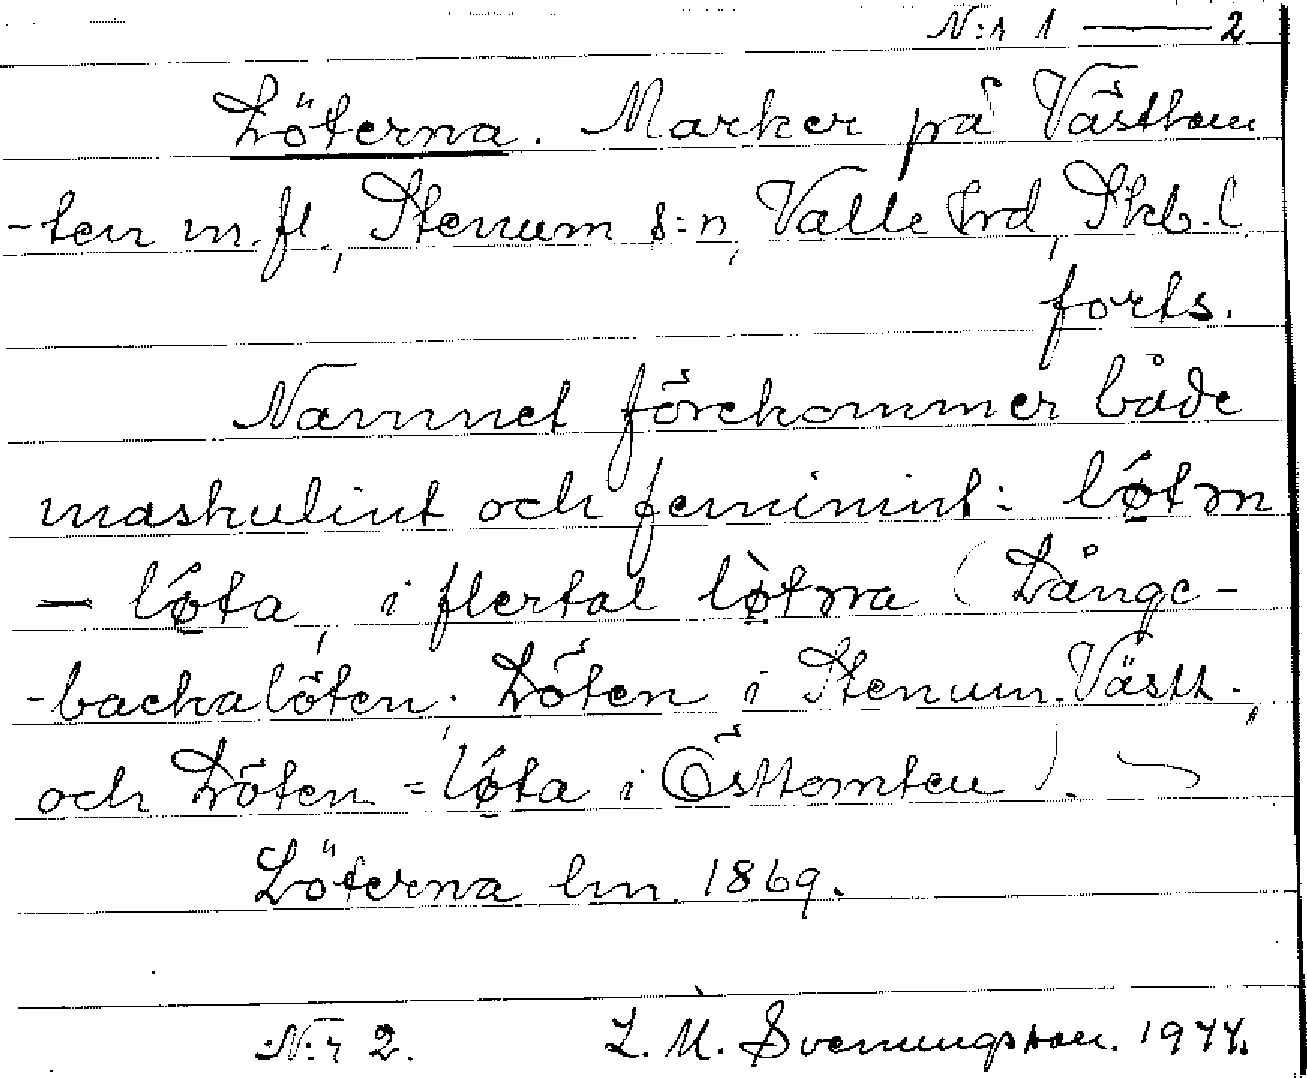 N:r 1 — 2
Löterna. Marker på Västtom
-ten m.fl., Stenum s:n, Valle hrd, Skb.l.
forts.
Namnet förekommer både
maskulint och feminint: lǿtɷn
— lǿta, i flertal lø̀tɷna (Långe-
-backalöten; Löten i Stenum. Västt.;
och Löten = lǿta i Östtomten).
Löterna lm 1869.
N:r 2. L. M. Svenungsson. 1944.